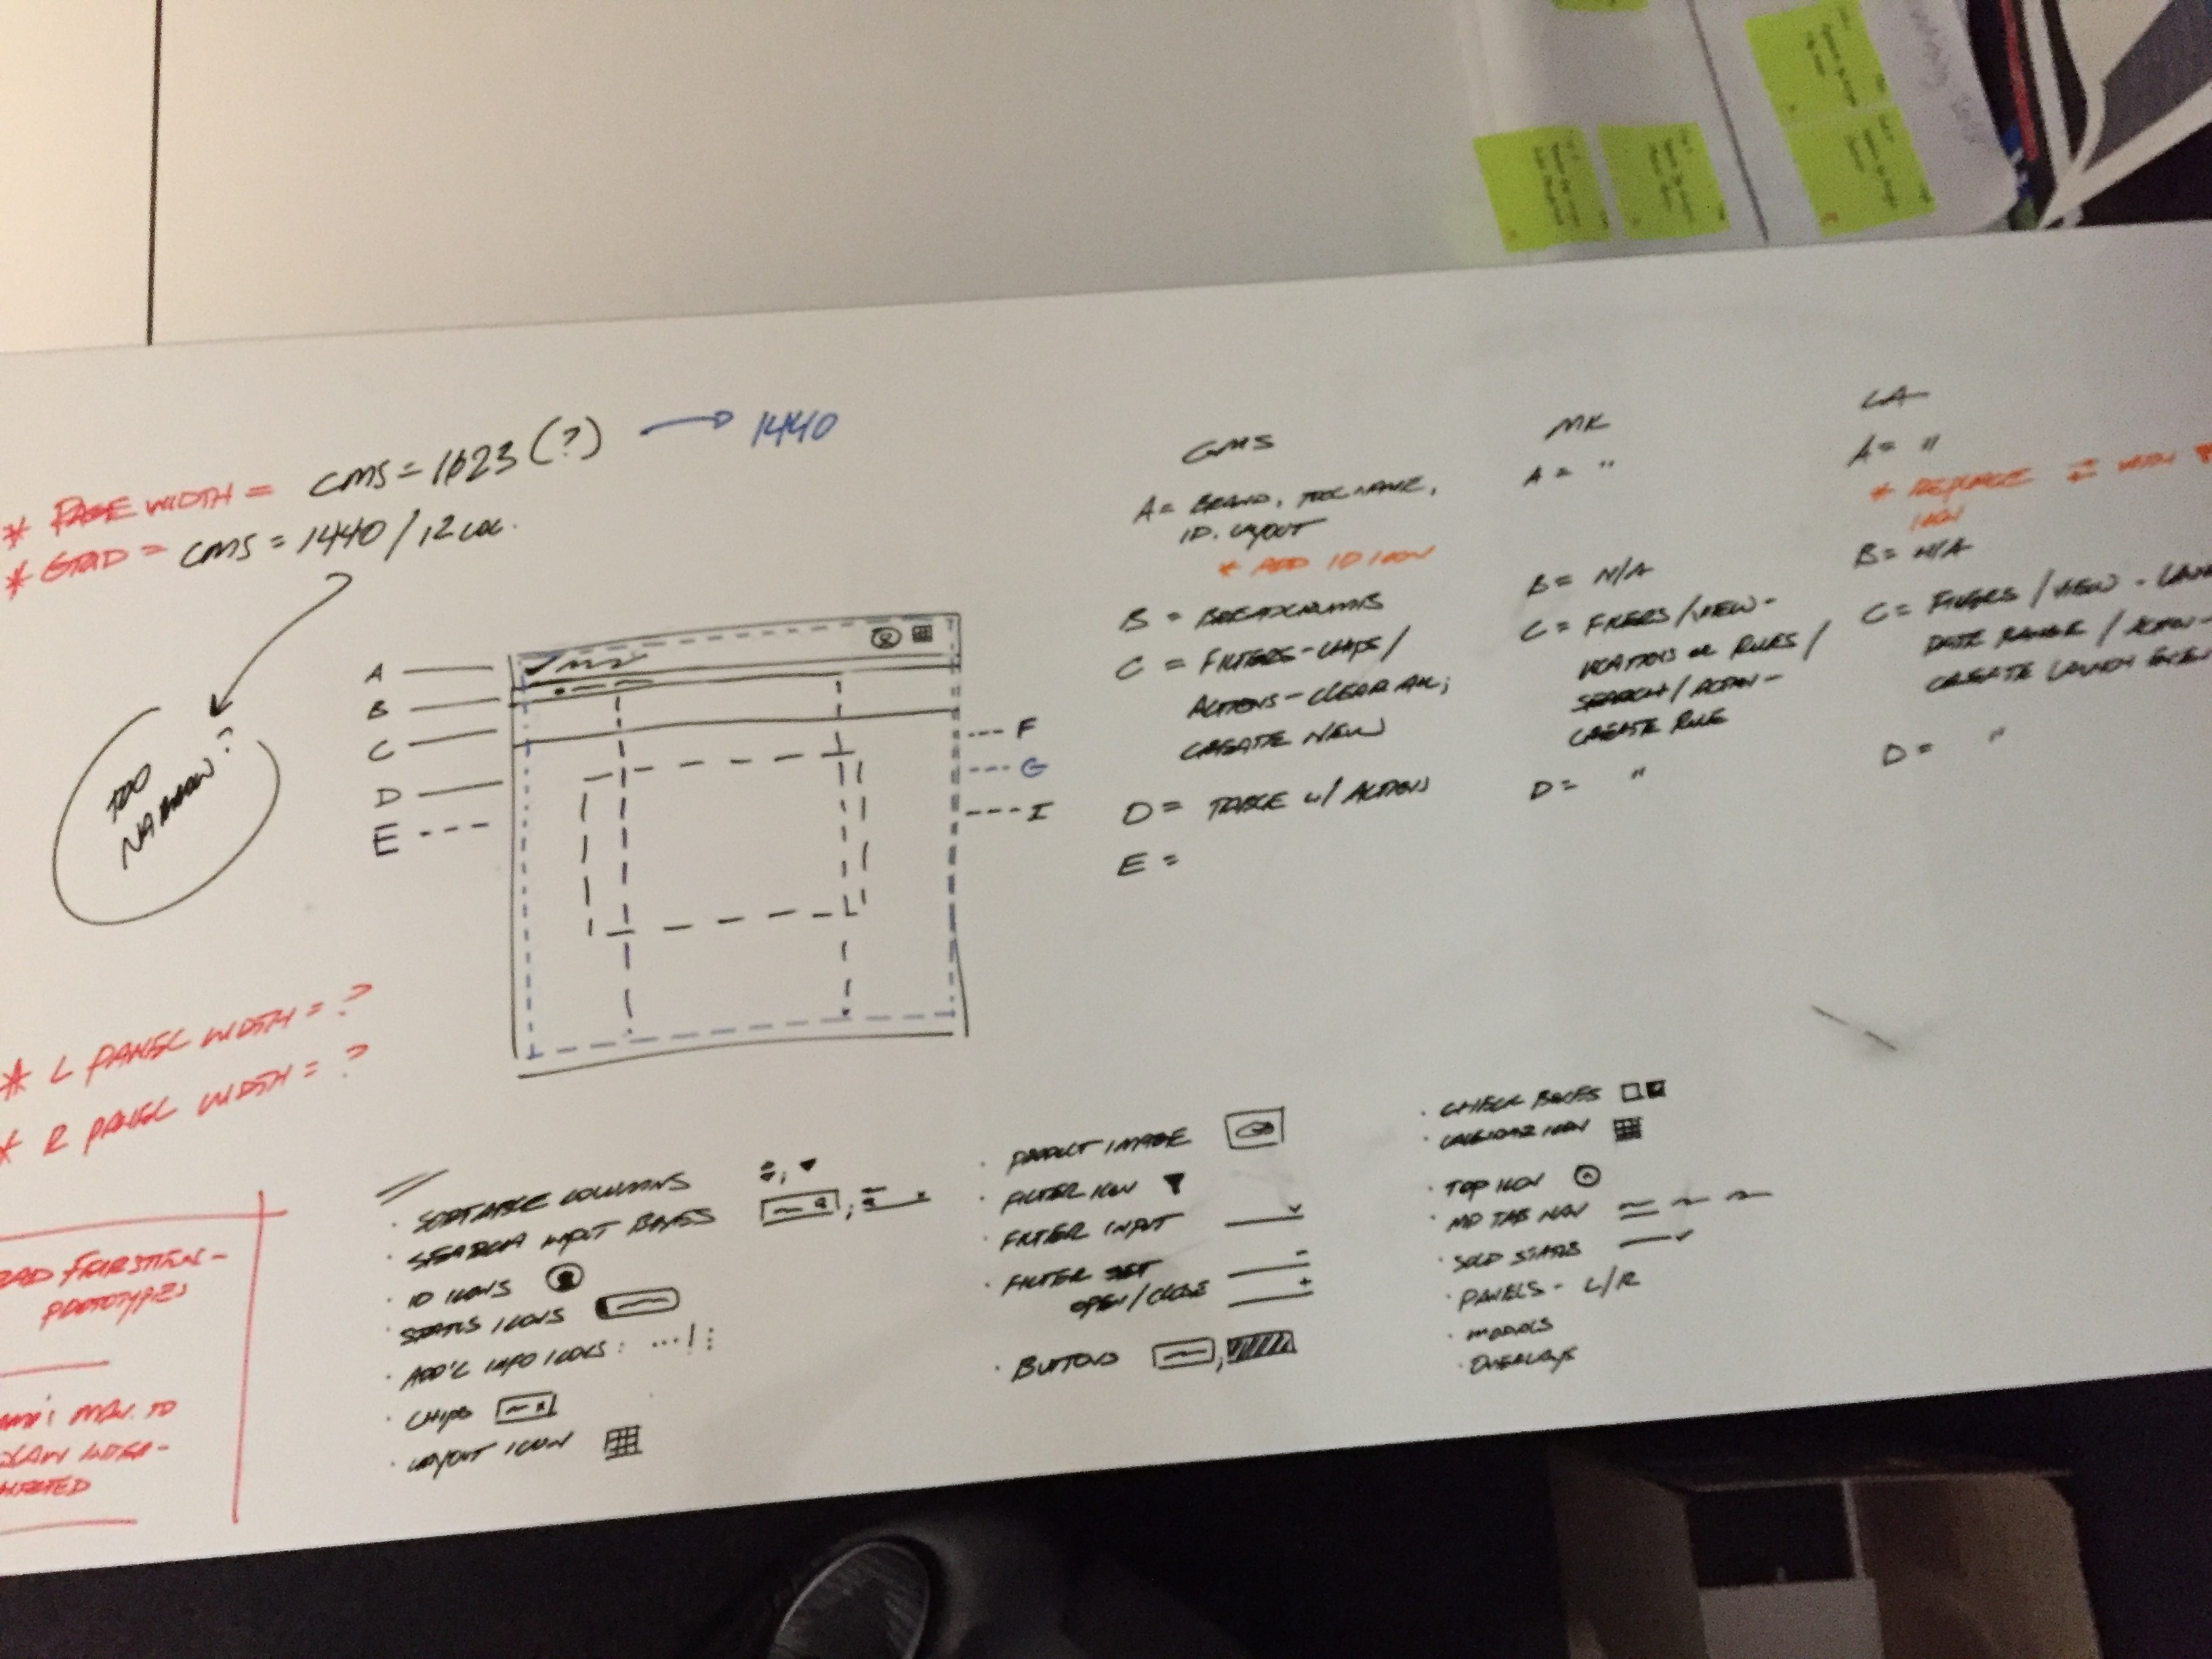 * PAGE WIDTH = CMS = 1623 (?) → 1440
* GRID = CMS = 1440 / 12 COL.
TOO
NARROW?
A
B
C
D
E
F
G
I
* L PANEL WIDTH = ?
* R PANEL WIDTH = ?
PROTOTYPES
MAN. TO
GMS
A = BRAND, TOOL NAME,
ID, LAYOUT
* ADD ID ICON
B = BREADCRUMBS
C = FILTERS - CHIPS /
ACTIONS - CLEAR ALL;
CREATE NEW
D = TABLE W/ ACTIONS
E =
MK
A = "
B = N/A
C = FILTERS / VIEW -
LOCATIONS OR RULES /
SEARCH / ACTION -
CREATE RULE
D = "
LA
A = "
* REPLACE ⇄ WITH ▼
ICON
B = N/A
C = FILTERS / VIEW -
DATE RANGE / ACTION -
CREATE LAUNCH
D = "
· SORTABLE COLUMNS
· SEARCH INPUT BOXES
· ID ICONS
· STATUS ICONS
· ADD'L INFO ICONS: ... / ⋮
· CHIPS
· LAYOUT ICON
· PRODUCT IMAGE
· FILTER ICON
· FILTER INPUT
· FILTER SET
OPEN / CLOSE
· BUTTONS
· CHECK BOXES
· CALENDAR ICON
· TOP ICON
· MD TAB NAV
· SOLD STATUS
· PANELS - L/R
· MODALS
· OVERLAYS